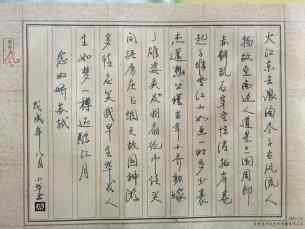 大江东去浪淘尽千古风流人
物故垒西边人道是三国周郎
赤壁乱石穿空惊涛拍岸卷
起千堆雪江山如画一时多少豪
杰遥想公瑾当年小乔初嫁
了雄姿英发羽扇纶巾谈笑
间樯虏灰飞烟灭故国神游
多情应笑我早生华发人
生如梦一樽还酹江月
念奴娇苏轼
戊戌年八月